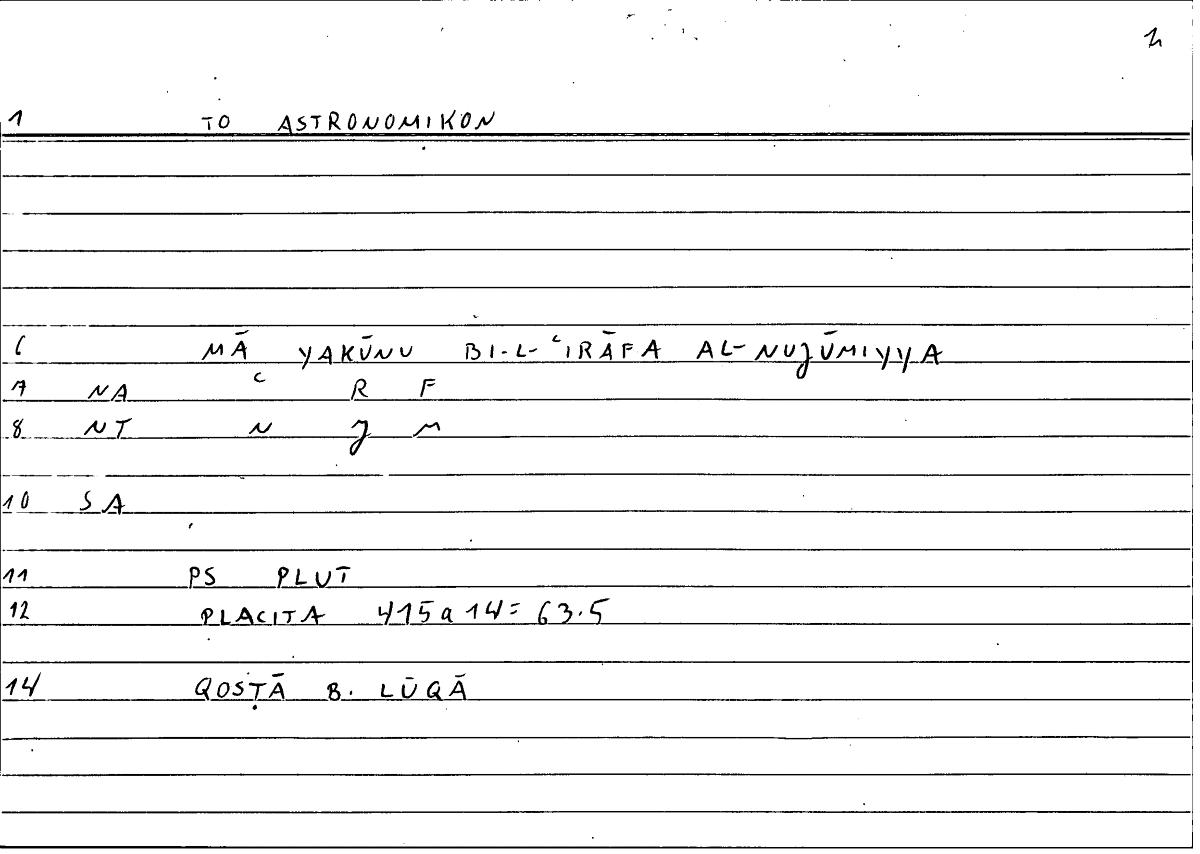 1 TO ASTRONOMIKON
6 MĀ YAKŪNU BI-L-ʿIRĀFA AL-NUJŪMIYYA
7 NA ʿ R F
8 NT N J M
10 SA
11 PS PLUT
12 PLACITA 415a14=63.5
14 QOSṬĀ B. LŪQĀ